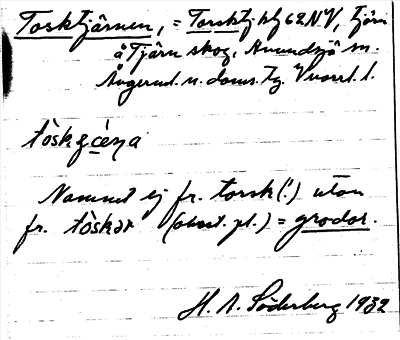 Tosktjärnen, = Torsktj. hfg 62 NV, tjärn
å Tjärn skog, Anundsjö sn.
Ångerml. n. doms. tg. Vnorrl. l.
tòskɕæ̀ɳa
Namnet ej fr. torsk (!) utan
fr. tòskər (obest. pl.) = grodor.
H. A. Söderberg 1932